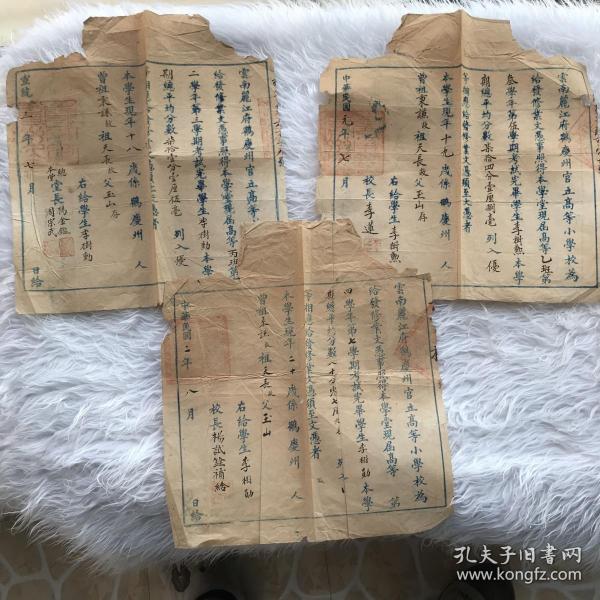 雲南麗江府鶴慶州官立高等小學校為
給發修業文憑事照得本學堂現屆高等丙班第
二學年第三學期考試完畢學生李樹勳本學
期總平均分數柒拾壹分壹厘伍毫列入優
等相應
本學生現年十八歲係鶴慶州人
曾祖東讓故祖天長故父玉山存
右給學生李樹勳
總
堂長楊金鑑
周宗武
宣統三年七月日給
雲南麗江府鶴慶州官立高等小學校為
給發修業文憑事照得本學堂現屆高等乙班第
叁學年第伍學期考試完畢學生李樹勳本學
期總平均分數柒拾四分壹厘捌毫列入優
等相應給發修業文憑須至文憑者
本學生現年十九歲係鶴慶州人
曾祖東讓故祖天長故父玉山存
右給學生李樹勳
校長李蓮
中華民國元年七月日給
雲南麗江府鶴慶州官立高等小學校為
給發修業文憑事照得本學堂現屆高等第
四學年第七學期考試完畢學生李樹勛本學
期總平均分數八十分
等相應給發修業文憑須至文憑者
本學生現年二十歲係鶴慶州人
曾祖東讓故祖天長故父玉山
右給學生李樹勛
校長楊
補給
中華民國二年八月日給
孔夫子旧书网
www.kongfz.com